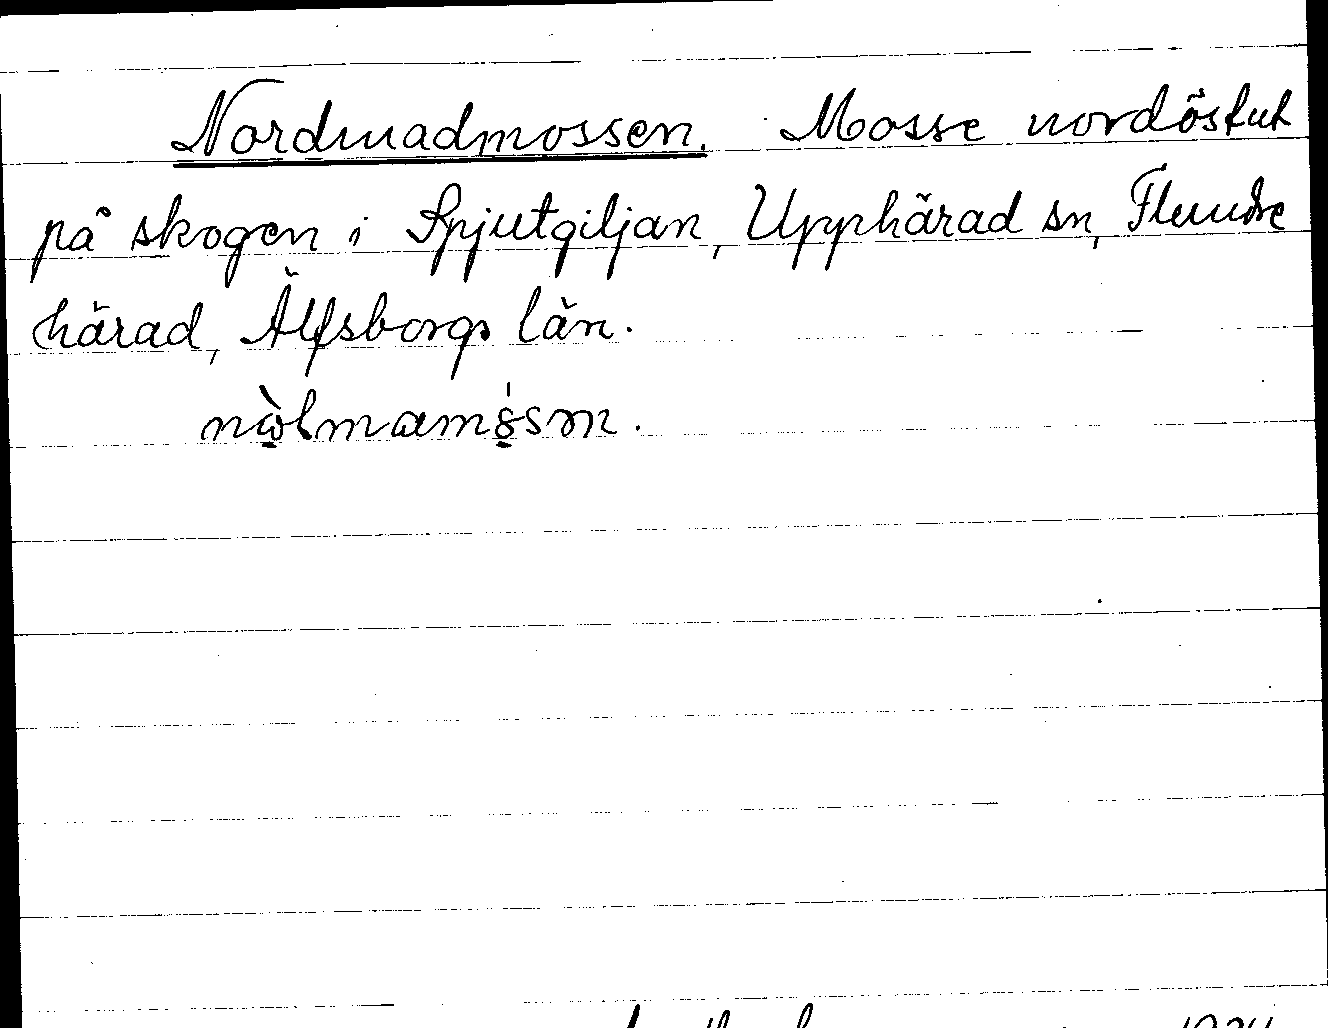 Nordmadmossen. Mosse nordöstut
på skogen i Spjutgiljan, Upphärad sn, Flundre
härad, Älfsborgs län.